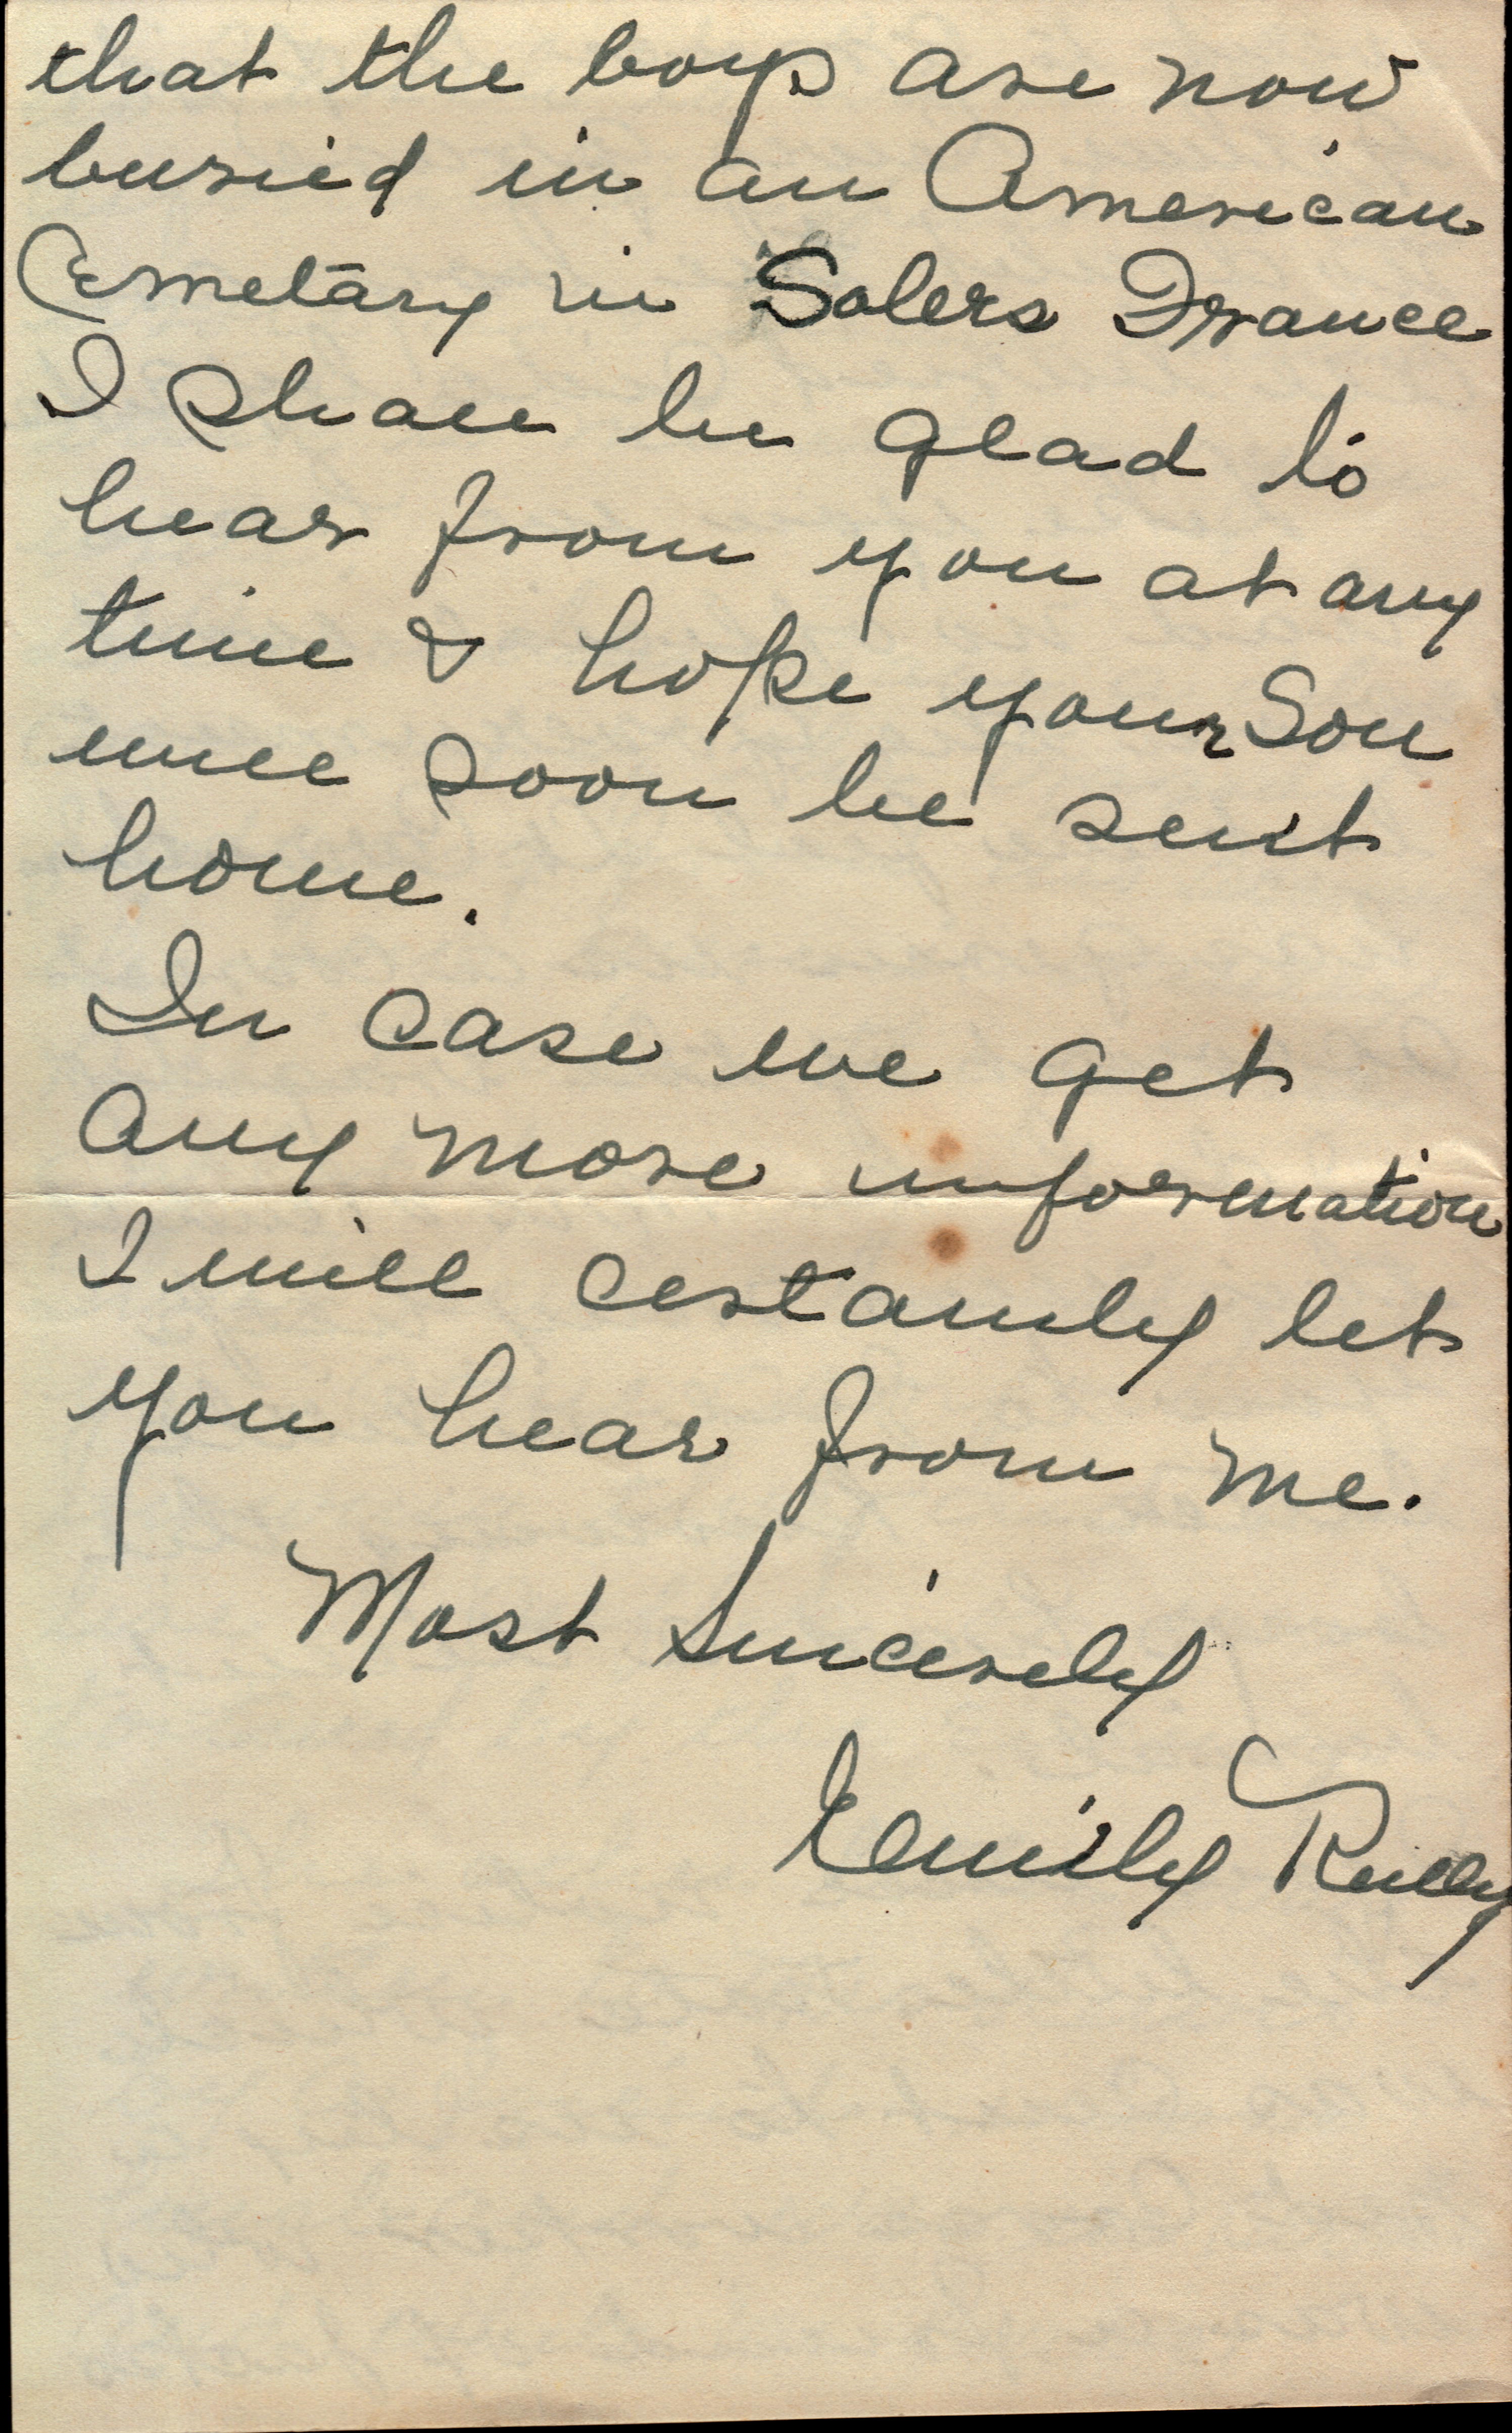 that the boys are now
buried in an American
Cemetary in Solers France
I shall be glad to
hear from you at any
time & hope your Son
will soon be sent
home.
In case we get
any more information
I will certanly let
you hear from me.
Most Sincerely
Emily Reilly